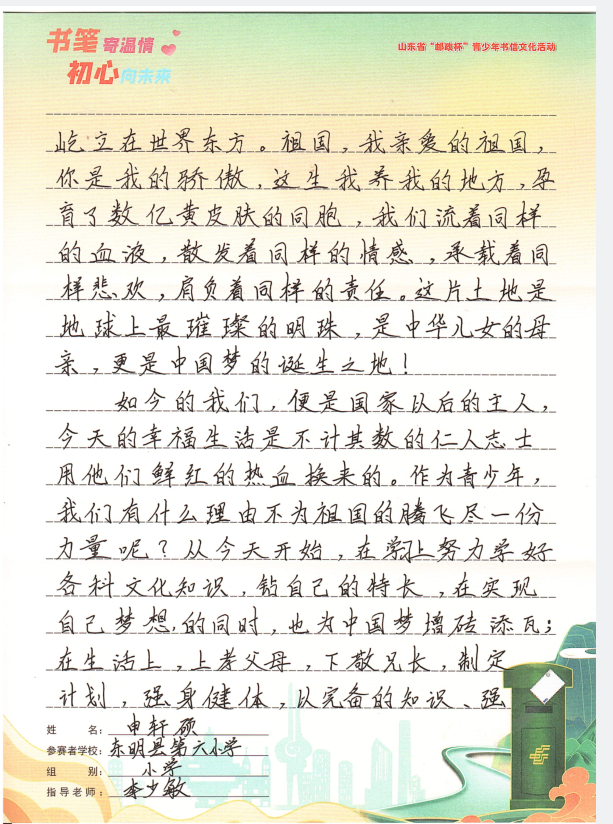 书笔寄温情
初心向未来
山东省“邮政杯”青少年书信文化活动
屹立在世界东方。祖国，我亲爱的祖国，
你是我的骄傲，这生我养我的地方，孕
育了数亿黄皮肤的同胞，我们流着同样
的血液，散发着同样的情感，承载着同
样悲欢，肩负着同样的责任。这片土地是
地球上最璀璨的明珠，是中华儿女的母
亲，更是中国梦的诞生之地！
如今的我们，便是国家以后的主人，
今天的幸福生活是不计其数的仁人志士
用他们鲜红的热血换来的。作为青少年，
我们有什么理由不为祖国的腾飞尽一份
力量呢？从今天开始，在学习上努力学好
各科文化知识，钻自己的特长，在实现
自己梦想的同时，也为中国梦增砖添瓦；
在生活上，上孝父母，下敬兄长，制定
计划，强身健体，以完备的知识、强
姓 名：申轩硕
参赛者学校：东明县第六小学
组 别：小学
指导老师：李少敏